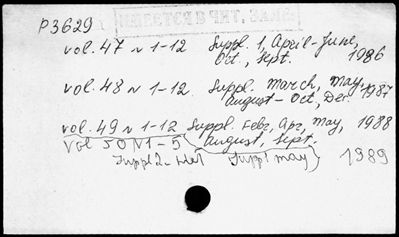 P3629
vol. 47 N 1-12 Suppl. 1, April-June, 1986
Oct., Sept.
vol. 48 N 1-12. Suppl. March, May, 1987
August - Oct, Dec.
vol. 49 N 1-12 Suppl. Febr, Apr, May, 1988
August, Sept.
Vol 50 N 1-5
Suppl 2- Suppl May 1989